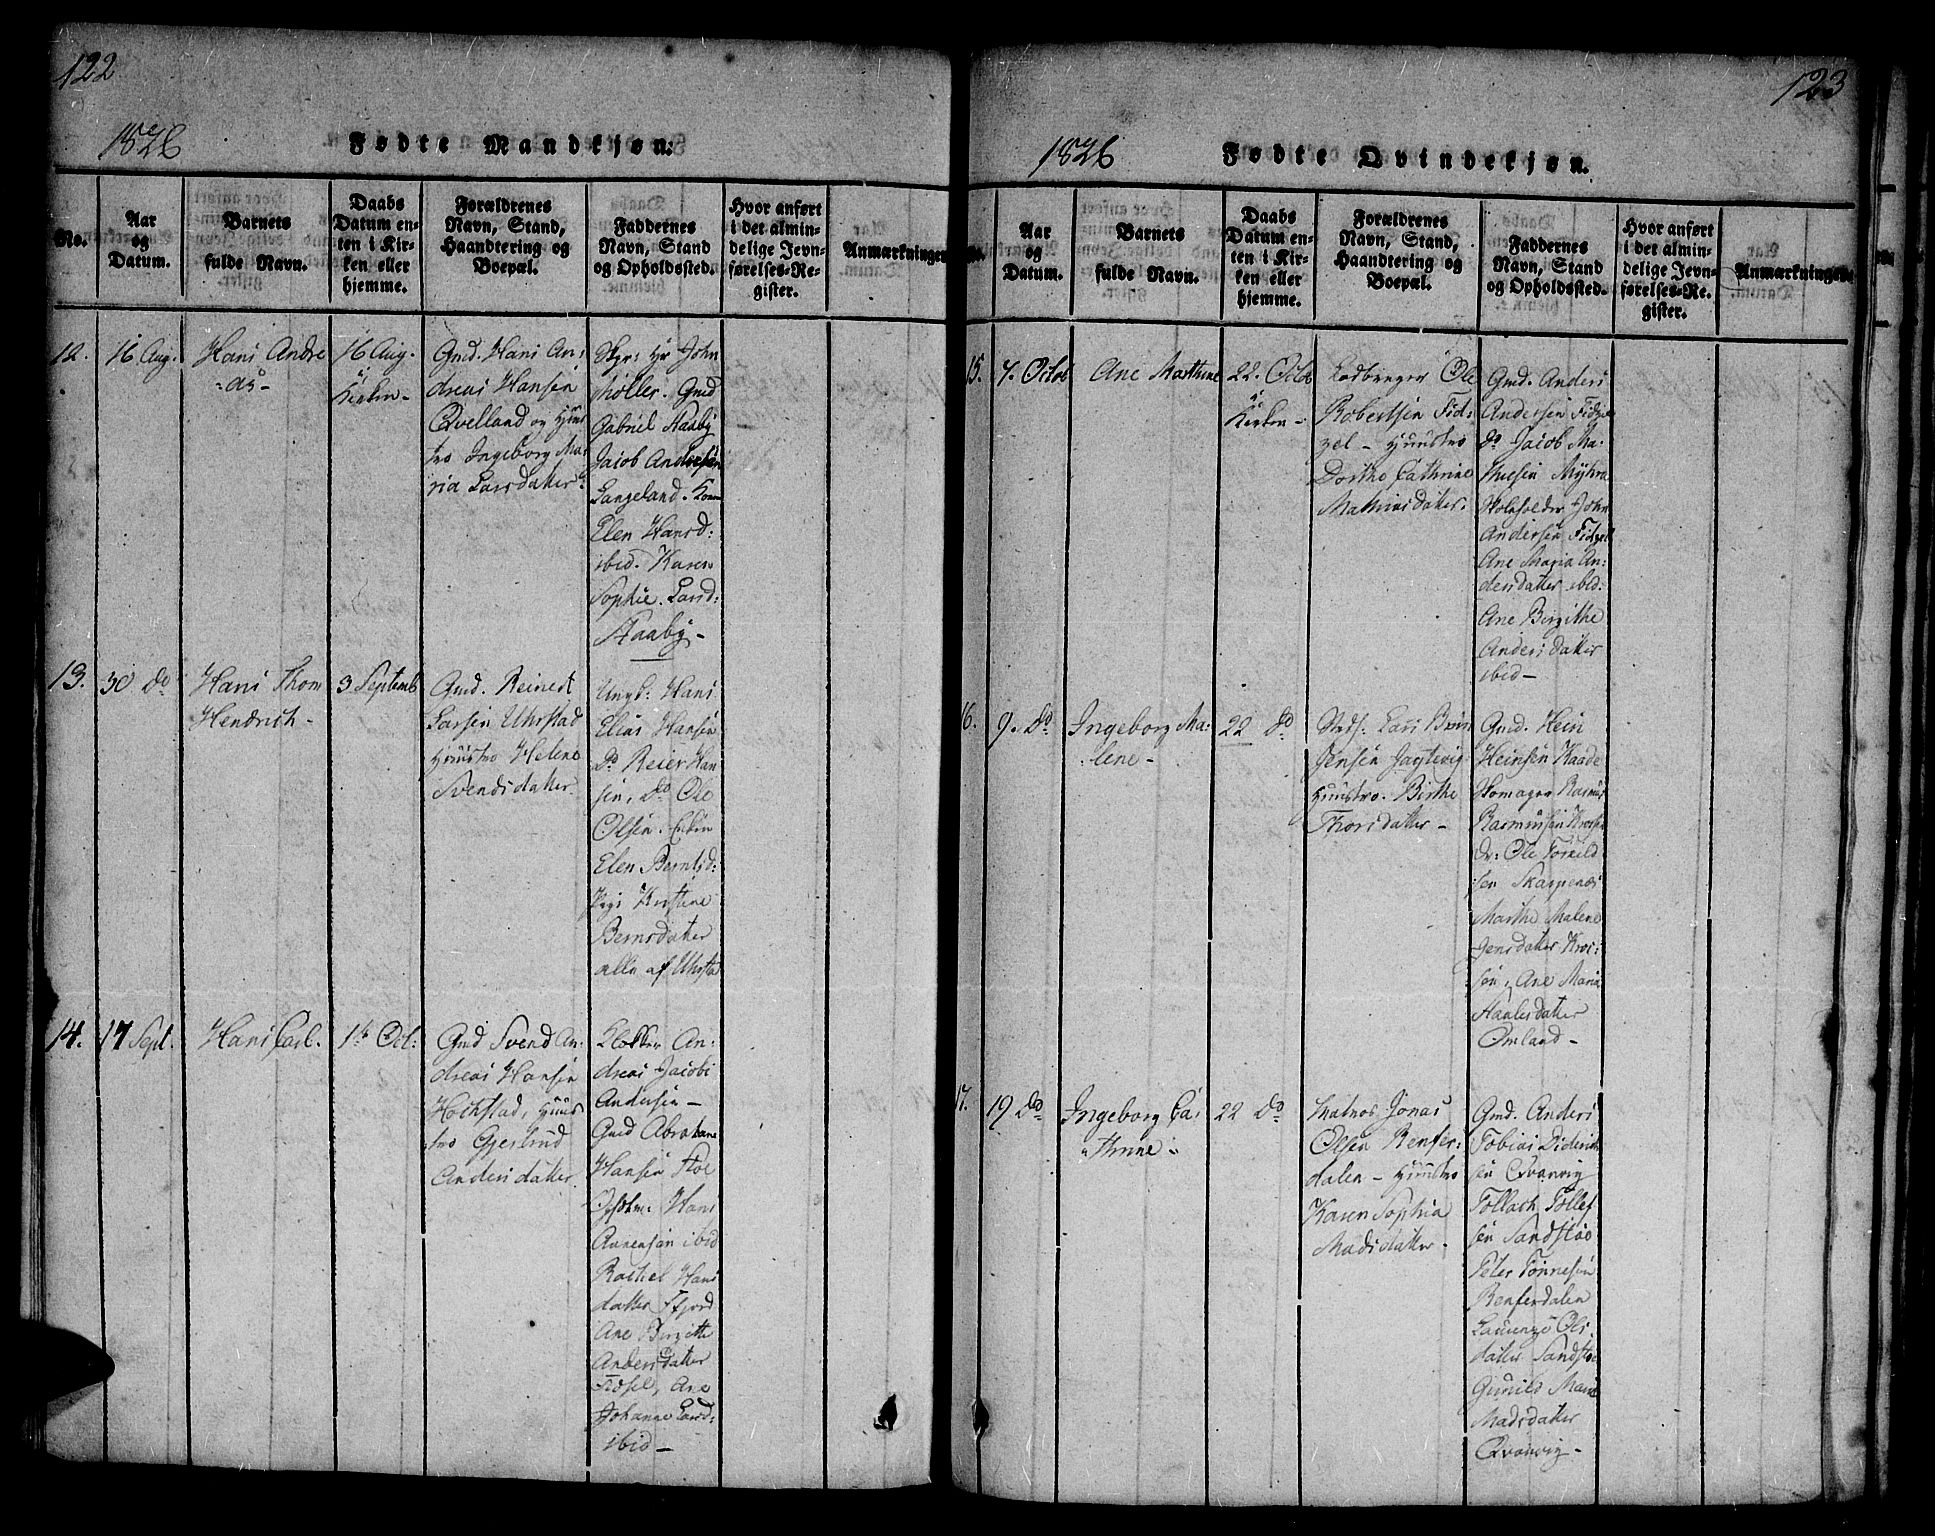 122
1826
Fødte Mandkjøn:
No.
Aar og Datum.
Barnets fulde Navn.
Daabs Datum enten i Kirken eller hjemme.
Forældrenes Navn, Stand, Haandtering og Boepæl.
Faddernes Navn, Stand og Opholdssted.
Hvor anført i det almindelige Jevnførelses-Register.
Anmærkninger
12.
16 Aug.
Hans Andre
as
16 Aug.
i
Kirken
Gmd. Hans An:
dreas Hansen
Qvelland og Huus
tro Ingeborg Ma:
ria Larsdatter
Hr John
Møller. Gmd
Gabriel Staaby
Jacob Andersen
Langeland. Kone
Elen Hansd:
ibid. Karen
Sophie Larsd:
Staaby
13.
30 do
Hans Thom
Hendrich
3 Septemb
Gmd. Reinert
Larsen Uhrstad
Huustro Helene
Svendsdatter
Ungd: Hans
Elias Hansen
do Reier Han
sen, do Ole
Olsen. Enken
Elen Berntsd:
Pige Kirstine
Berntsdatter
alle af Uhrsta
14.
17 Sept.
Hans Carl.
1ste Oct:
Gmd Svend An:
dreas Hansen
Huus
tro Gjertrud
Andersdatter
Klokker An:
dreas Jacobs
Andersen
Gmd Abraham
Hansen
Hans
ibid
Rachel Hans
datter
Ane Birgitte
Andersdatter
Ane
Johanne Larsd:
ibid
123
1826
Fødte Qvindekjøn.
No.
Aar og Datum.
Barnets fulde Navn.
Daabs Datum enten i Kirken eller hjemme.
Forældrenes Navn, Stand, Haandtering og Boepæl.
Faddernes Navn, Stand og Opholdssted.
Hvor anført i det almindelige Jevnførelses-Register.
Anmærkninger
15.
7. Octob
Ane Marthine
22. Octob
i
Kirken
Ole
Robertsen Fid:
zel Huustro
Dorthe Cathrine
Mathiasdatter.
Gmd. Anders
Andersen Fidzel
do Jacob Ma:
thiesen
John
Andersen Fidzel
Ane Maria An:
dersdatter ibid:
Ane Birgithe
Andersdatter
ibid
16.
9. do
Ingeborg Ma:
lene
22 do
Lars
Jensen
Huustro. Birthe
Thorsdatter
Gmd. Hein
Heinsen Kaade
Skomager Rasmus
Rasmussen
do: Ole
sen Skarpenæs
Marthe Malene
Jensdatter
Ane Maria
datter
Omland
17.
19 do
Ingeborg Ca:
thrine
22 do
Matros Jonas
Olsen Renfer:
dalen Huustro
Karen Sophia
Madsdatter
Gmd. Anders
Tobias Diderich
sen Qvanvig
Tollach Tollef
sen Sandstøe
Peter Tønnesen
Renferdalen
Ols:
datter Sandstøe
Gunild Marie
Madsdatter
Qvanvig